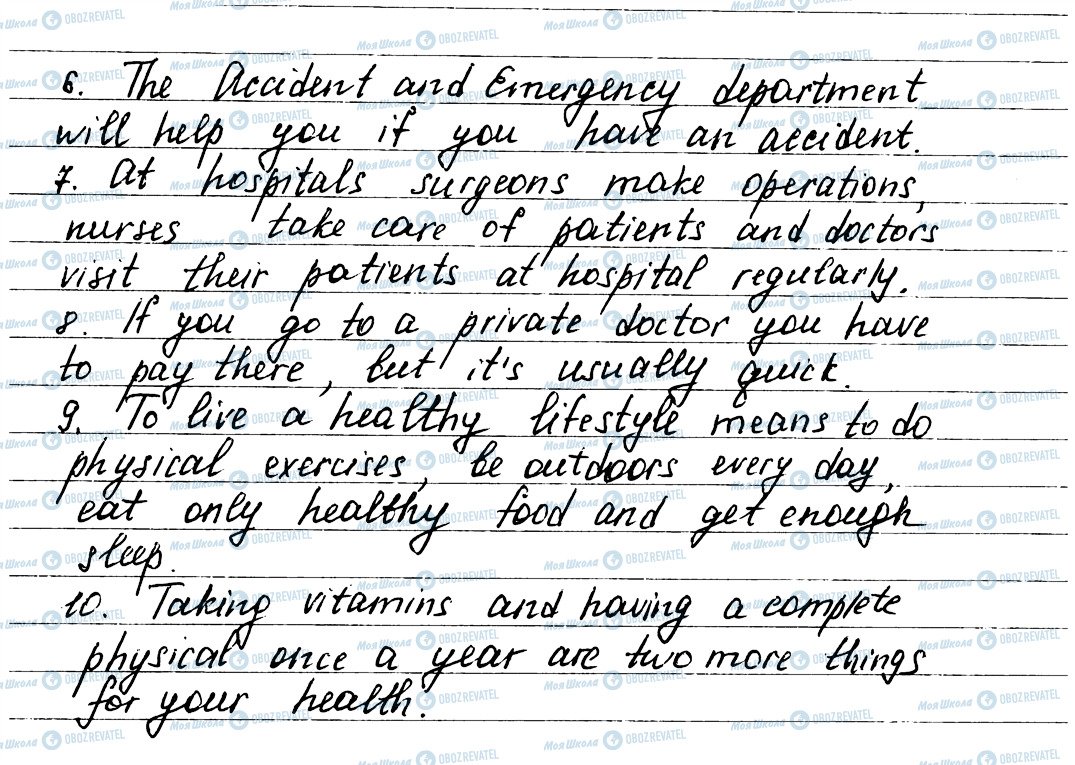 6. The Accident and Emergency department
will help you if you have an accident.
7. At hospitals surgeons make operations,
nurses take care of patients and doctors
visit their patients at hospital regularly.
8. If you go to a private doctor you have
to pay there, but it's usually quick.
9. To live a healthy lifestyle means to do
physical exercises, be outdoors every day,
eat only healthy food and get enough
sleep.
10. Taking vitamins and having a complete
physical once a year are two more things
for your health.
Моя Школа OBOZREVATEL